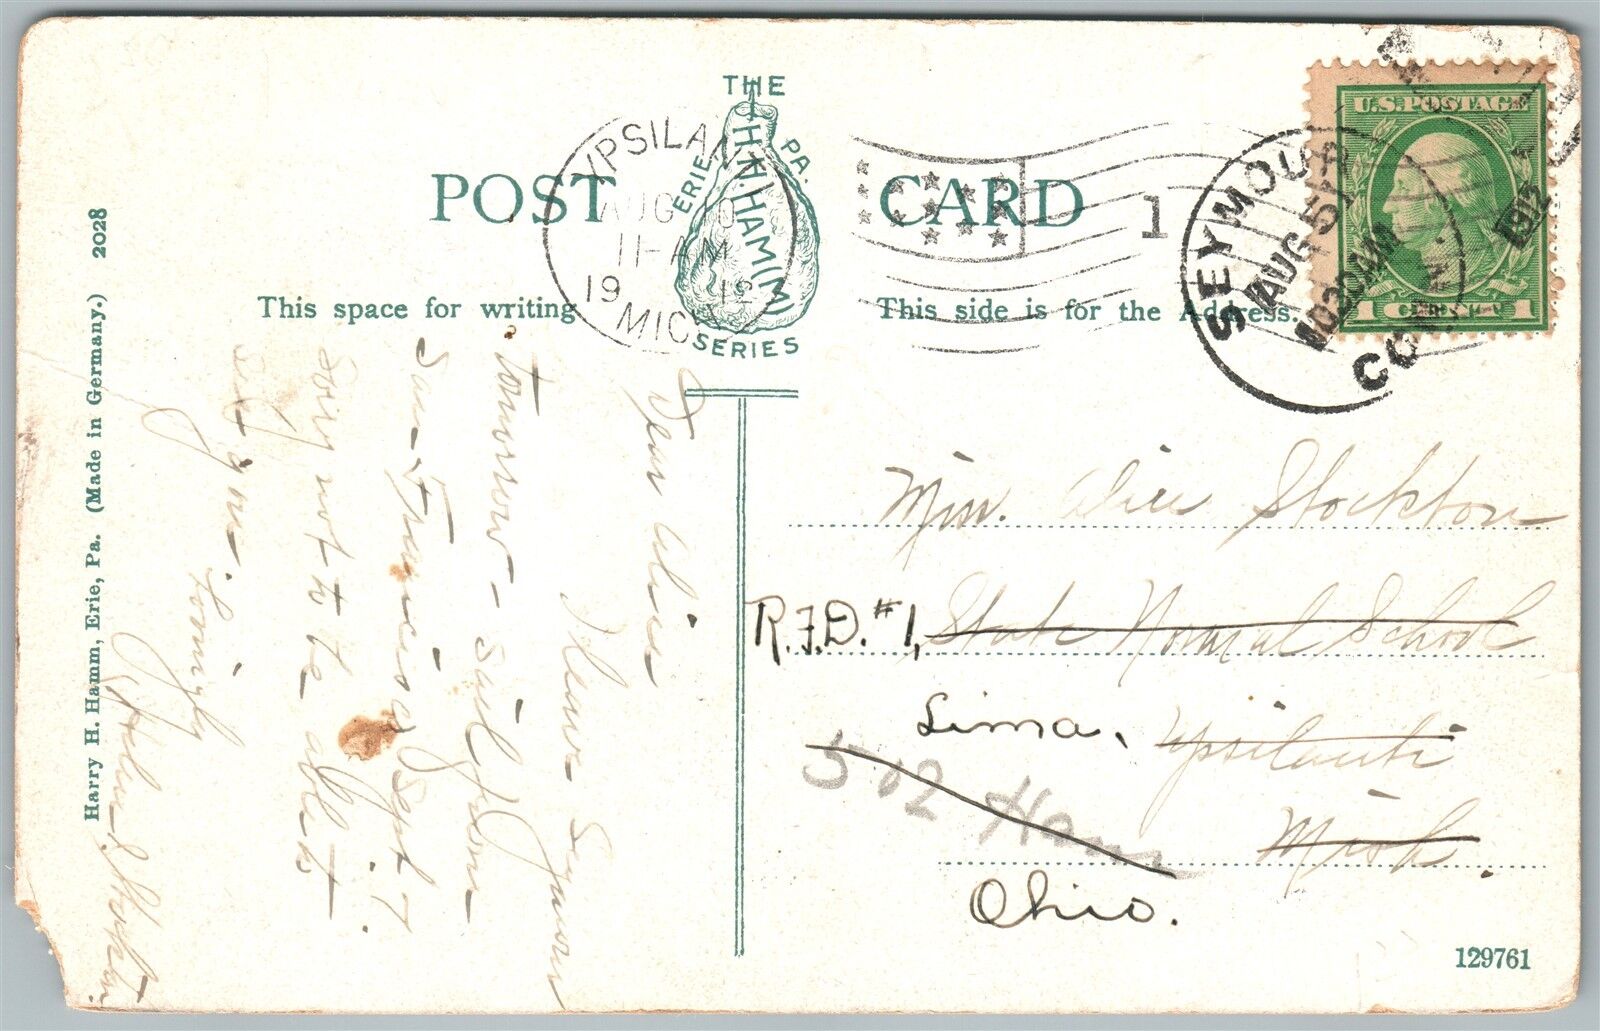 THE
HAM(M)
ERIE PA.
SERIES
POST CARD
This space for writing
This side is for the Address.
YPSILAN
AUG 10
11-AM
1912
MICH
1
SEYMOUR
AUG 5
1030AM
1912
CONN
U.S. POSTAGE
1 CENT 1
Dear Alice
I leave Seymour
tomorrow - sail from
San Francisco Sept 7.
Sorry not to be able to
see you.
Lovingly
Helen J. Stockton.
Miss. Alice Stockton
R.F.D. #1, State Normal School
Lima, Ypsilanti
502 Ham
Mich.
Ohio.
Harry H. Hamm, Erie, Pa. (Made in Germany.) 2028
129761